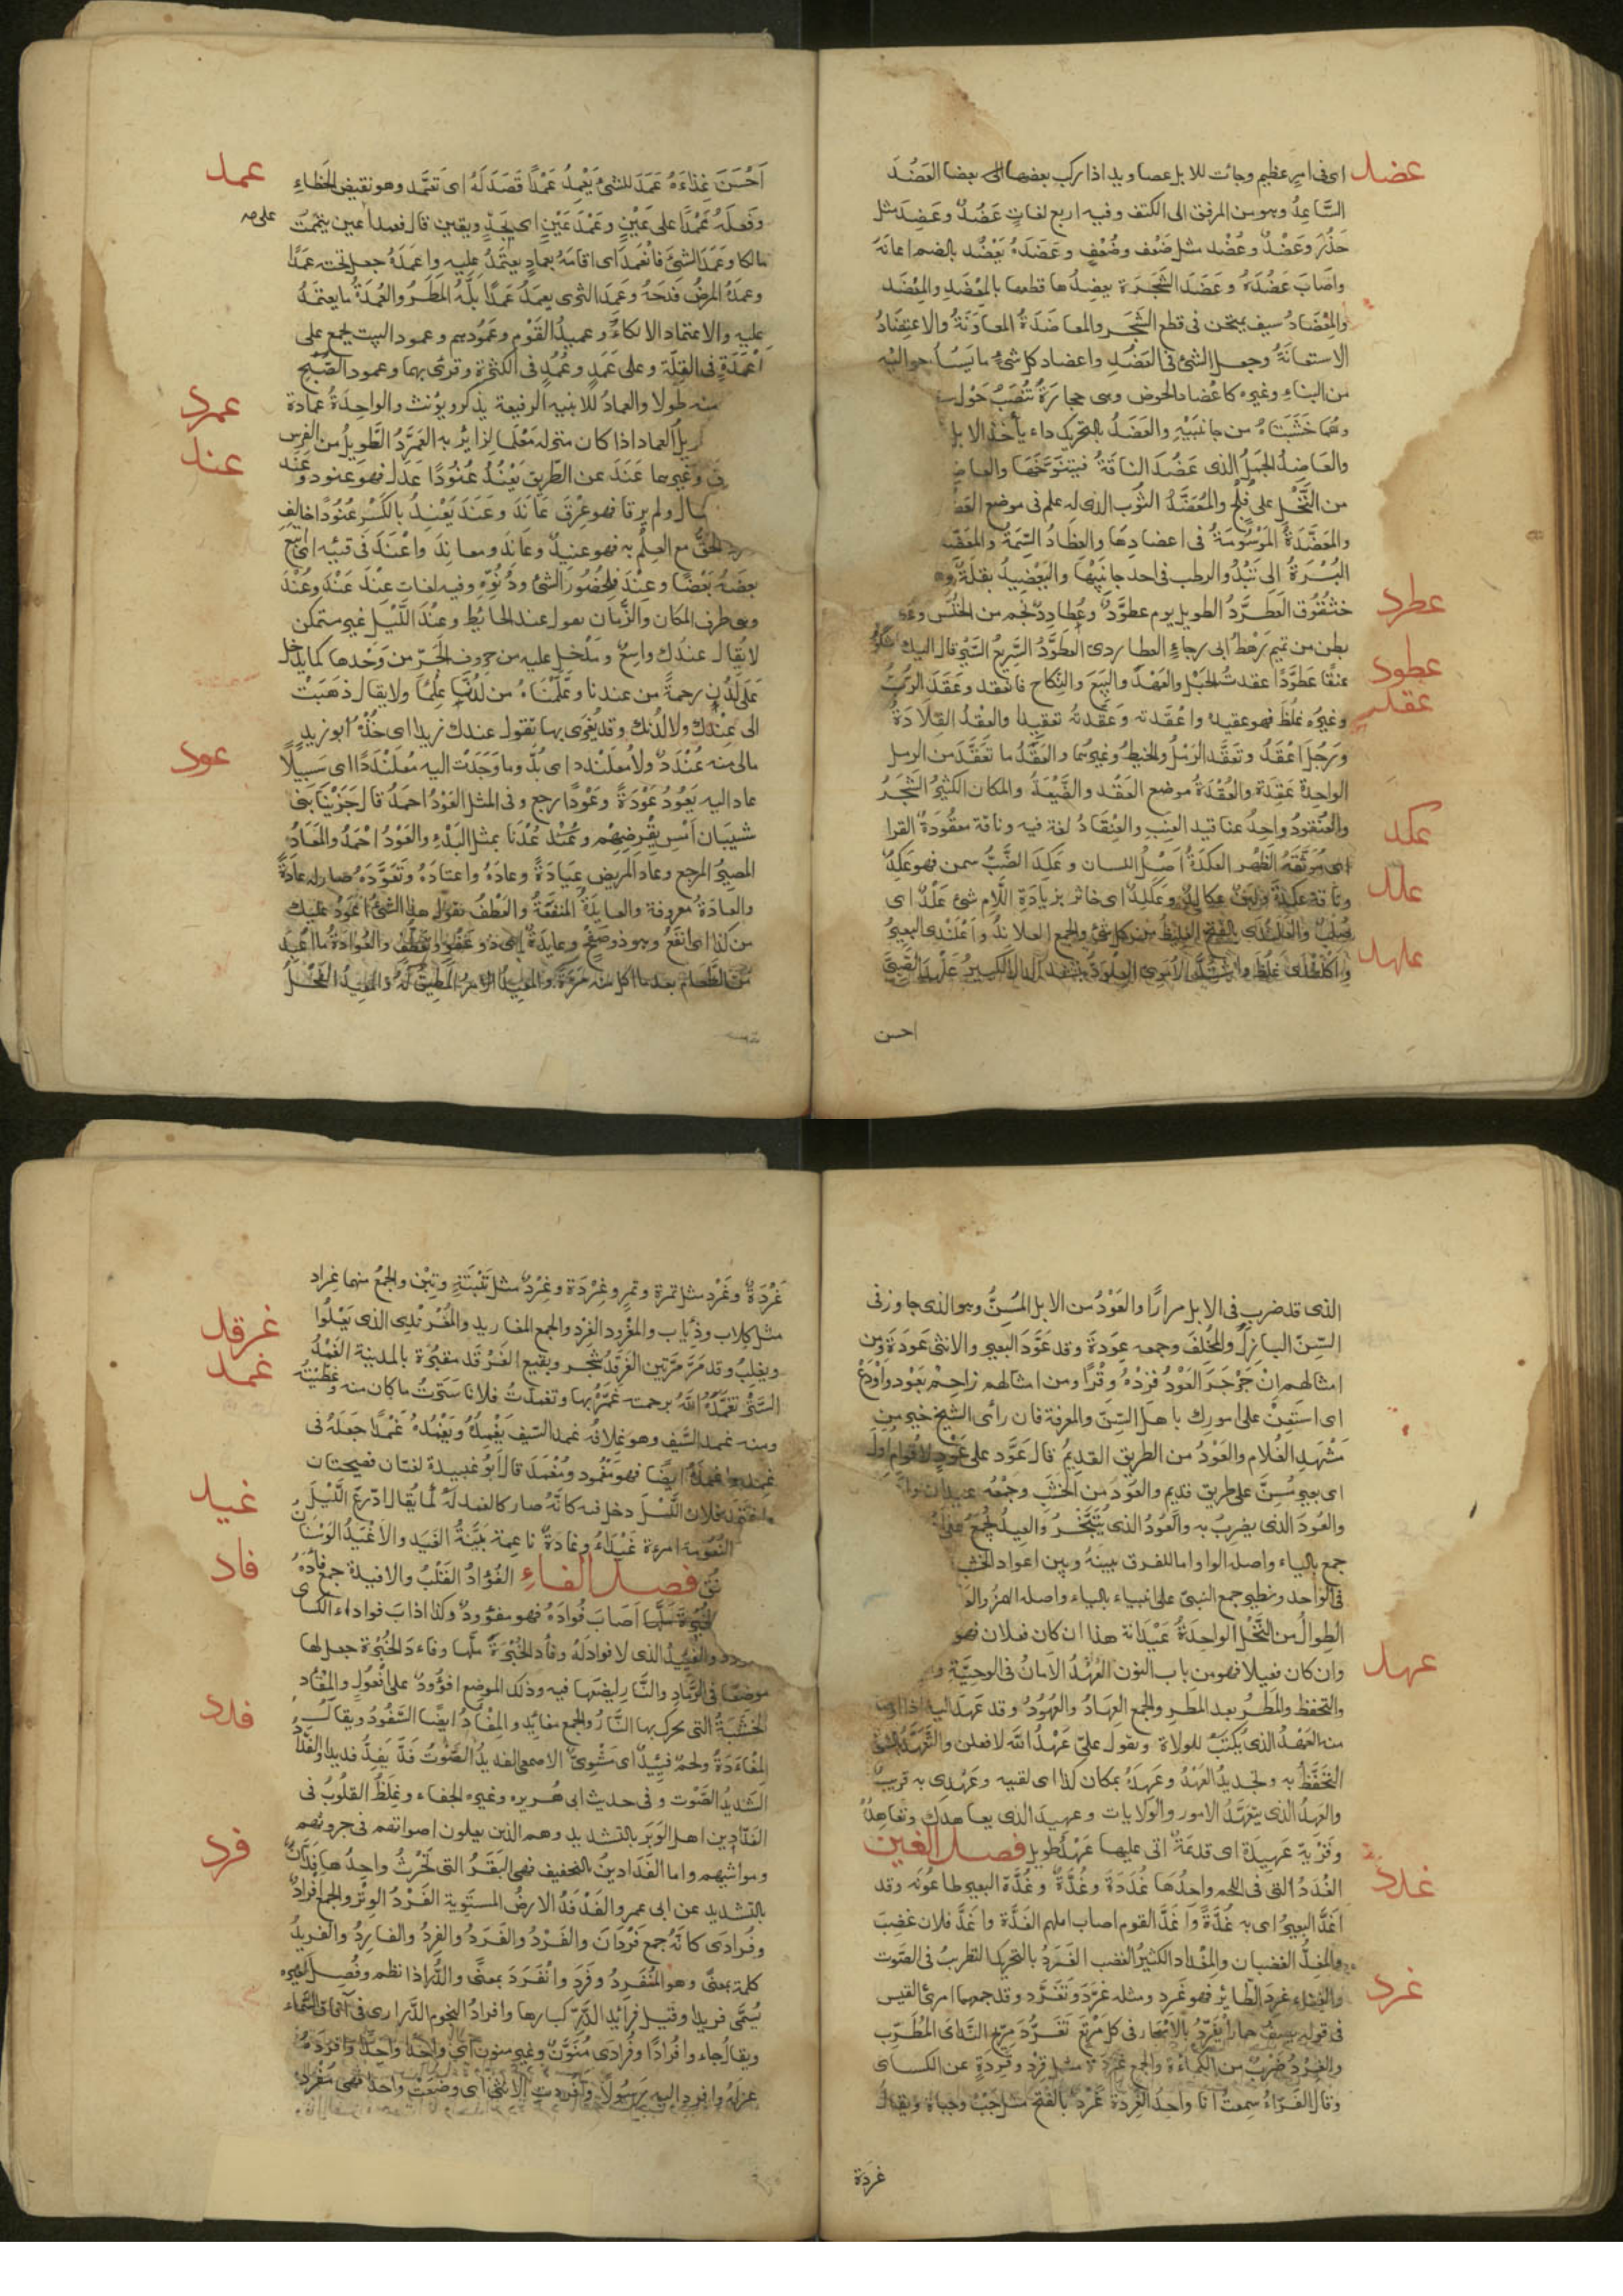 عضد
اى فى امر عظيم وجائت للابل عصاويد اذا ركب بعضها الى بعضا العَضُد
السَّاعِدُ وهو من المرفق الى الكتف وفيه اربع لغاتٍ عَضُدٌ وعَضِدَ مثل
حَذُرَ وَعَضْدٌ وعُضْد مثل ضَعْف وضُعْفٍ وعَضَدَهُ يَعْضُد بالضم اعانَهُ
واَصَابَ عَضُدَهُ وعَضَدَ الشَّجَرَة يعضِدُها قطعها بالمِعْضَدِ والمِعْضَد
والمِعْضَادُ سيف يمتحن فى قطع الشَّجَر والمعاضَدَةُ المعاوَنَةُ والاعتِضَادُ
الاستعانَةُ وجعل الشئ فى العَضُدِ واعضاد كل شئ ما يَسُدُّ حواليه
من البناء وغيره كاعضاد الحوض وهى حجارَةٌ تُنْصَبُ حَوْل
وهُمَا خَشَبَتَاهُ من جانبَيْهِ والعَضَدُ بالتحريك داء يأخذ الابل
والعَاضِدُ الجَمَلُ الذى عَضُدَ الناقَةُ فيتنوَّخَهَا
من النَّخْلِ على فَلَجٍ والمُعَضَّدُ الثوب الذى له علم فى موضع
والمُعَضَّدَةُ المَوْسُومَةُ فى اعضادِهَا والعِضَادُ السِّمَةُ
البُسْرَةُ الى تَبْدُو الرطب فى احد جانِبَيْها واليَعْضِيدُ بقلَةٌ
عطرد
العَطَرَّدُ الطويل يوم عطرَّدٌ وعُطارِدٌ نجم من الخُنَّسِ
بطن من تميم رَهْطُ ابى رجاءٍ العطاردى العَطَوَّدُ السَّرِيعُ السَّيْر قال اليك
عطود
عقد
عنقًا عَطَوَّدًا عقدتُ الحَبْل والعَهْدَ والبَيعَ والنِّكاح فانعقد وعَقَدَ الرُبُّ
وغيْرُه غلُظَ فهو عقيد واعْقَدته وَعَقَّدتُهُ تعقِيدًا والعِقْدُ القِلادَةُ
ورَجُلٌ اعْقَدُ وتعَقَّدَ الرَمْلُ والخيطُ وغيرُهما والعَقَدُ ما تَعَقَّدَ من الرمل
الواحِدَةُ عقِدَة والعُقْدَةُ موضع العَقْد والضَّيْعَةُ والمكان الكثيرُ الشَّجَرُ
والعُنْقودُ واحِدُ عناقيد العِنَبِ والعِنْقَادُ لغة فيه وناقة معقُودَةُ القرا
عكد
اى مُوَثَّقَةُ الظهر العكَدَةُ اَصْلُ اللسان وعَكِدَ الضَّبُّ سمن فهو عَكِدٌ
علد
بزيادَةِ اللَّام شئ عَلْدٌ اى
علهد
احسن

عمد
اَحْسَنَ غِذاءَهُ عَمَدَ للشئ يَعْمِدُ عَمْدًا قَصَدَ لَهُ اى تعمَّد وهو نقيض الخطاءِ
وَفَعَلَهُ عَمْدًا على عَيْنٍ وعَمْدَ عَيْنٍ اى بجِدٍّ ويقين قال فعمدًا عين يتممت
على
مالكا وعَمَدَ الشَئَ فانْعَمَدَ اى اقامَهُ بعِمادٍ يعتمَدُ عليه واعمَدَهُ جعل تحته عمَدًا
وعمَدَهُ المرضُ فدَحَهُ وعَمِدَ الثرى يعمَدُ عَمَدًا بلَّهُ المَطَرُ والعُمْدَةُ ما يعتمَدُ
عليه والاعتماد الاتكاء وعميدُ القَوْم وعَمُودُهم وعمود البيت يجمع على
اَعْمِدَةٍ فى القِلَّة وعلى عَمَدٍ وعُمُدٍ فى الكثرة وقرئ بهما وعمود الصُّبْحِ
منه طُولا والعمادُ للابنيه الرفيعة يذكر ويؤنث والواحِدَةُ عمادة
عمرد
العماد اذا كان منزله مَعْلَمًا لزائرِ به العَمَرَّدُ الطَّويلُ من الفَرس
عند
وغيرهما عَنَدَ عن الطَّرِيق يَعْنُدُ عُنُودًا عَدَلَ فهو عنود وعَنَد
سال ولم يرقا فهو عِرْقٌ عَانِدٌ وعَنَدَ يَعْنِدُ بالكَسْر عُنُودًا خالَفَ
الحَقَّ مع العِلْم به فهو عنيدٌ وعَانِدٌ ومعانِدٌ واعْنَدَ فى قيئه اى تبع
بعضَهُ بَعْضًا وعِنْدَ لحُضُور الشئ ودُنُوِّه وفيه لغات عِنْدَ عَنْدَ وعُنْدَ
وهى ظرف المكان والزَّمان نقول عند الحائِط وعِنْدَ اللَّيْل غير متمكن
لا يُقال عِنْدَكَ واسِعٌ وتدخل عليه من حروف الجَرّ من وَحْدها كما يدخل
عَلَى لَدُن رحمةً من عندنا وعَلَّمْنَاهُ من لَدُنَّا عِلْمًا ولا يقال ذهَبَتْ
الى عِنْدِكَ ولا لدُنك وقد يُغرَى بها تقول عندك زيدا اى خُذْهُ ابوزيد
عود
مالى منه عُنْدَدٌ ولا مُعلَنْدد اى بُدّ وما وجَدْت اليه مُعلَنْدَدًا اى سَبِيلًا
عاد اليه يَعُودُ عَوْدَةً وعَوْدًا رجع وفى المثل العَوْدُ احمَدُ قال جَزَيْنَا بنى
شيبَان اَمْسِ بِقَرضِهِم وعُدْنَا بمثل البَدْءِ والعَوْدُ احْمَدُ والمَعَادُ
المصيرُ المرجع وعاد المريض عيادَةً وعادَهُ واعتادَهُ وتَعَوَّدَهُ صار له عادَةً
والعادَةُ معروفة والعايدَةُ المنفعَةُ والعَطْفُ نقول هذا الشئ اَعْوَدُ عليك
من كذا اى انفَعُ وهو ذو صَفْحٍ وعايدَةٍ اى ذو عَفْوٍ وتعَطُّفٍ والعُوَادَةُ ما اُعيد
من الطَّعام بعد ما اكل منه مرَّةً

الذى قد ضرب فى الابل مرارًا والعَوْدُ من الابل المُسِنُّ وهو الذى جاوز فى
السِّنّ البازِلَ والمُخْلِفَ وجمعه عِوَدَةٌ وقد عَوَّدَ البعير والانثى عَودَة ومن
امثالهم اِنْ جَرْجَرَ العَوْدُ فزِدْهُ وقْرًا ومن امثالهم زاحِمْ بعَوْد اَوْدَعْ
اى استَعِنْ على امورك باهل السِّنّ والمعرفة فان رأى الشيخ خير من
مَشْهَدِ الغُلام والعَوْدُ من الطريق القدِيمُ قال عَوْد على عَوْد لاقوام اُوَل
اى بعير مُسِنّ على طريق قديم والعُودُ من الخَشَبِ وجَمْعُه عيدان
والعُودَ الذى يضرِبُ به والعُودُ الذى يُتَبَخَّرُ والعِيدُ يُجمَعُ
جمع بالياء واصله الواو اما للفرق بينهُ وبين اعواد الخشب
فى الواحد ونظيره جمع النبىّ على انبياء بالياء واصله الهمز
الطِوالُ من النَّخْل الواحِدَةُ عَيْدَانة هذا ان كان فعلان فهو
عهد
وان كان فيعالا فهو من باب النون العَهْدُ الاَمَانُ فى الوصيَّةِ
والتحفظ والمَطَرُ بعد المطر والجمع العِهَادُ والعُهُودُ وقد عَهِدَ اليه اذا اوصا
منه العَهْدُ الذى يُكتَبُ للولاة ونقول علىّ عَهْدُ اللّه لافعلن
التَحفّظُ به وتجديدُ العَهْدُ وعَهِدَهُ بمكان كذا اى لقيه وعَهْدِى به قريب
والعَهِدُ الذى يتعَهَّدُ الامور والولايات وعهيدَ الذى يعاهدك وتعاهِدُهُ
وَقَرْيَة عَهِيدَة اى قديمَةٌ اتى عليها عَهْدٌ طويل فصل الغين
غدد
الغُدَدُ التى فى اللحم واحدُهَا غُدَدَة وغُدَّةٌ وغُدَّة البعير طاعونُه وقد
اَغَدَّ البعيرُ اى به غُدَّةٌ وَاَغَدَّ القوم اصاب ابلهم الغُدَّة واَغَدَّ فلان غضِبَ
والمُغِدُّ الغضبان والمِغْدَاد الكثيرُ الغضب الغَرَدُ بالتحريك التطريبُ فى الصَّوت
غرد
والغِناء غرِدَ الطَّائِرُ فهو غَرِدٍ ومثله غرَّدَ وتَغَرَّد وقد جمعهما امرئ القيس
فى قوله يصِفُ حمارًا يُغَرِّدُ بالاَسْحَار فى كل مَرْتَع تَغَرُّدَ مِرّيح النَّدَامَى المُطَرِّبِ
والغِرْدُ ضَرْبٌ من الكَمْأَة والجمع غِرَدَة مثل قِرْدٍ وقِرَدَةٍ عن الكسائى
وقال الفَرَّاءُ سمِعتُ انا واحِدُ الغِرَدَة غَرْد بالفتح مثل جَبْ وجباة ويقال
غَردَة

غَرْدَةٌ وغَرْد مثل تمرة وتمر وغِرْدَة وغِرْدٌ مثل تِبْنَةٍ وتِبْن والجمعُ منهما غِراد
مثل كِلاب وذِئاب والمُغْرود الغِرد والجمع المغاريد والمُغْرَنْدِى الذى يَعْلُوا
غرقد
ويغلِبُ وقد مَرَّ مرَّتين الغَرْقَدُ شجر وبقيع الغَرْقَد مقبَرَة بالمدينة الغَمْدُ
غمد
السَتْرُ تغَمَّدَهُ اللّهُ برحمته غَمَّرَهُ بها وتغمدتُ فلانا سَتَرْتُ ما كان منه وغطَّيْتُهُ
ومنه غمد السَّيف وهو غِلافُه غمدَ السّيف يَغْمِدُهُ ويَغْمُدُهُ غَمْدًا جعَلَهُ فى
غِمْدِه واغمَدَهُ ايضًا فهو مَغْمُود ومُغْمَدَ قال اَبُو عبيدة لغتان فصيحتان
غيد
واغتمَدَ فلان اللَّيْلَ دخل فيه كانَّهُ صار كالغمد لَهُ كما يُقال ادّرعَ اللَّيْلَ
النُعُومَة امرءة غَيْدَاءُ وغادَةٌ ناعِمة بيّنةُ الغَيَد والاَغْيَدُ الوَسْنَان
فاد
فصل الفاءِ الفُؤادُ القَلْبُ والافئِدَة جمعُ فادَهُ
اَصَابَ فُوادَهُ فهو مفؤودٌ وكذا اذابَ فواد داء الكسائى
والفَئِيدُ الذى لا فوادلهُ وفأد الخُبْزَةَ ملَّها وفاءدَ الخُبْزة جعل لها
موضعًا فى الرَّماد والنَّار ليضعَها فيه وذلك الموضع افؤُودٌ على اُفْعُولٍ والمِفْأد
فدد
الخَشَبَةُ التى يحرك بها النَّارُ والجمع مفائد والمِفْأَدُ ايضًا السَّفُودُ ويقال
المِفْاءَدَةُ ولحم فَئِيدٌ اى مَشْوِىّ الاصمعى الفديدُ الصَّوْتُ فَدَّ يَفِدُّ فديدا والفَدَّادُ
الشديدُ الصَّوْت وفى حديث ابى هريره وغيره الجفاء وغِلَظُ القلُوبُ فى
الفَدَّادِين اهل الوَبَر بالتشديد وهم الذين يعلون اصواتهم فى حروثهم
فرد
ومواشِيهِم واما الفَدَادِينُ بالتخفيف فهى البَقَرُ التى تَحْرُثُ واحِدُها فَدَّانٌ
بالتشديد عن ابى عمرو الفَدْفَدُ الارضُ المستَوِية الفَرْدُ الوِتْرُ والجمع افرادٌ
وفُرادَى كانَّهُ جمع فَرْدَانَ والفَرْدُ والفَرَدُ والفَرِدُ والفارِدُ والفريدُ
كله بمعنًى وهو المنُفَرِدُ وفَرَدَ وانْفَرَدَ بمعنًى والدُّر اذا نظم وفُصِل بغيره
يُسَمَّى فريدا وقيل فرائِد الدُّرّ كبارها وافرادُ النجوم الدَّرارى فى آفاق السَّماء
ويقال جاءوا فُرادًا وفُرادَى مُنَوَّنٌ وغير منون اى واحدًا واحدًا وافردَهُ
عزلَهُ وافرد اليه رَسُولًا وافردت الانثى اى وضَعَتْ واحدا فهى مُفْرِدٌ